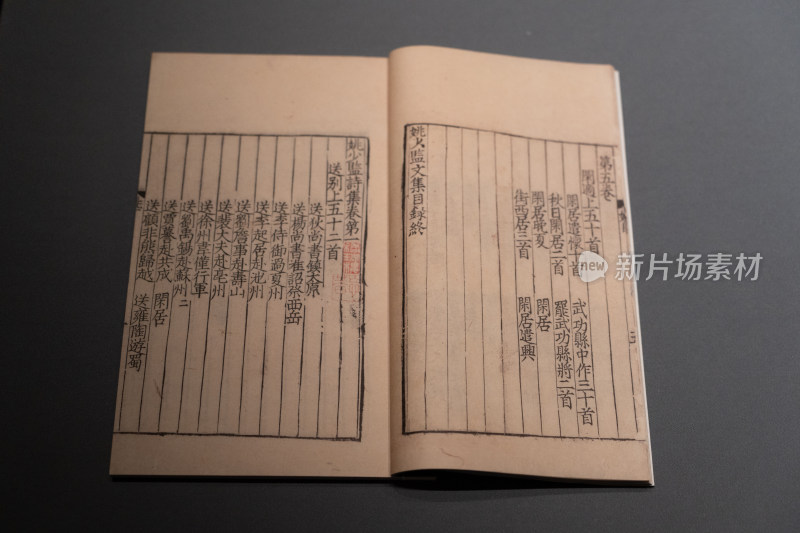 第五卷
閑適上五十首
閑居遣懷十首 武功縣中作三十首
秋日閑居二首 罷武功縣將二首
閑居晚夏 閑居
街西居三首 閑居遣興
姚少監文集目録終
姚少監詩集卷第
送别上五十二首
送狄尚書鎮太原
送楊尚書 西岳
送李侍御過夏州
送李起居赴池州
送劉詹事赴壽山
送裴大夫赴亳州
送徐州 行軍
送劉禹錫赴蘇州二
送 閑居
送顧非熊歸越 送雍陶遊蜀
new 新片场素材